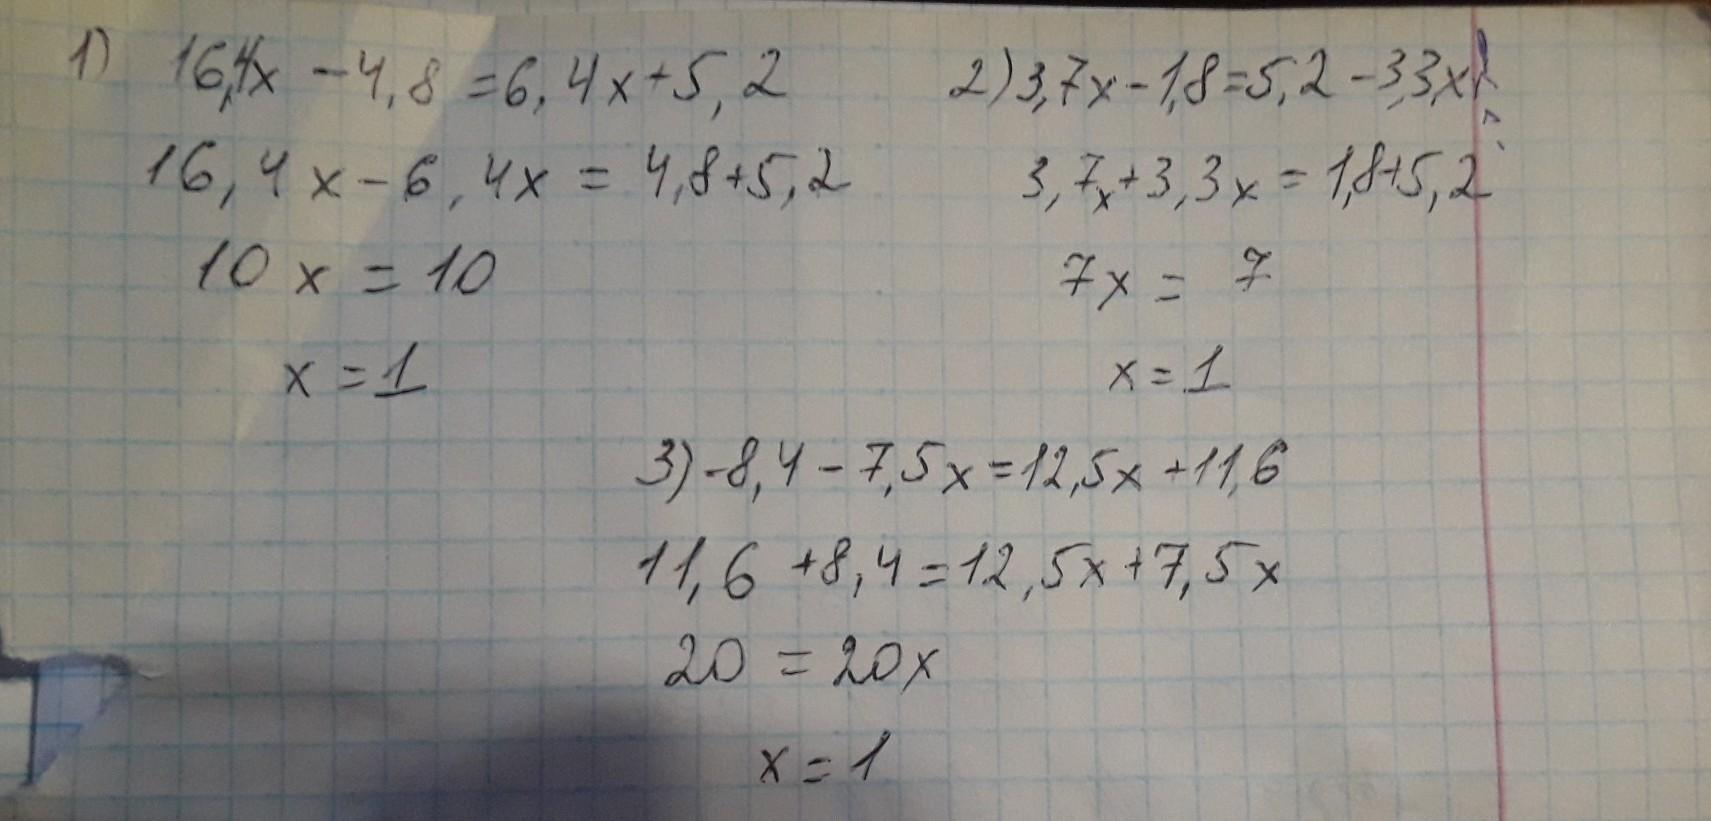 1) 16,4x - 4,8 = 6,4x + 5,2
16,4x - 6,4x = 4,8 + 5,2
10x = 10
x = 1
2) 3,7x - 1,8 = 5,2 - 3,3x
3,7x + 3,3x = 1,8 + 5,2
7x = 7
x = 1
3) -8,4 - 7,5x = 12,5x + 11,6
11,6 + 8,4 = 12,5x + 7,5x
20 = 20x
x = 1